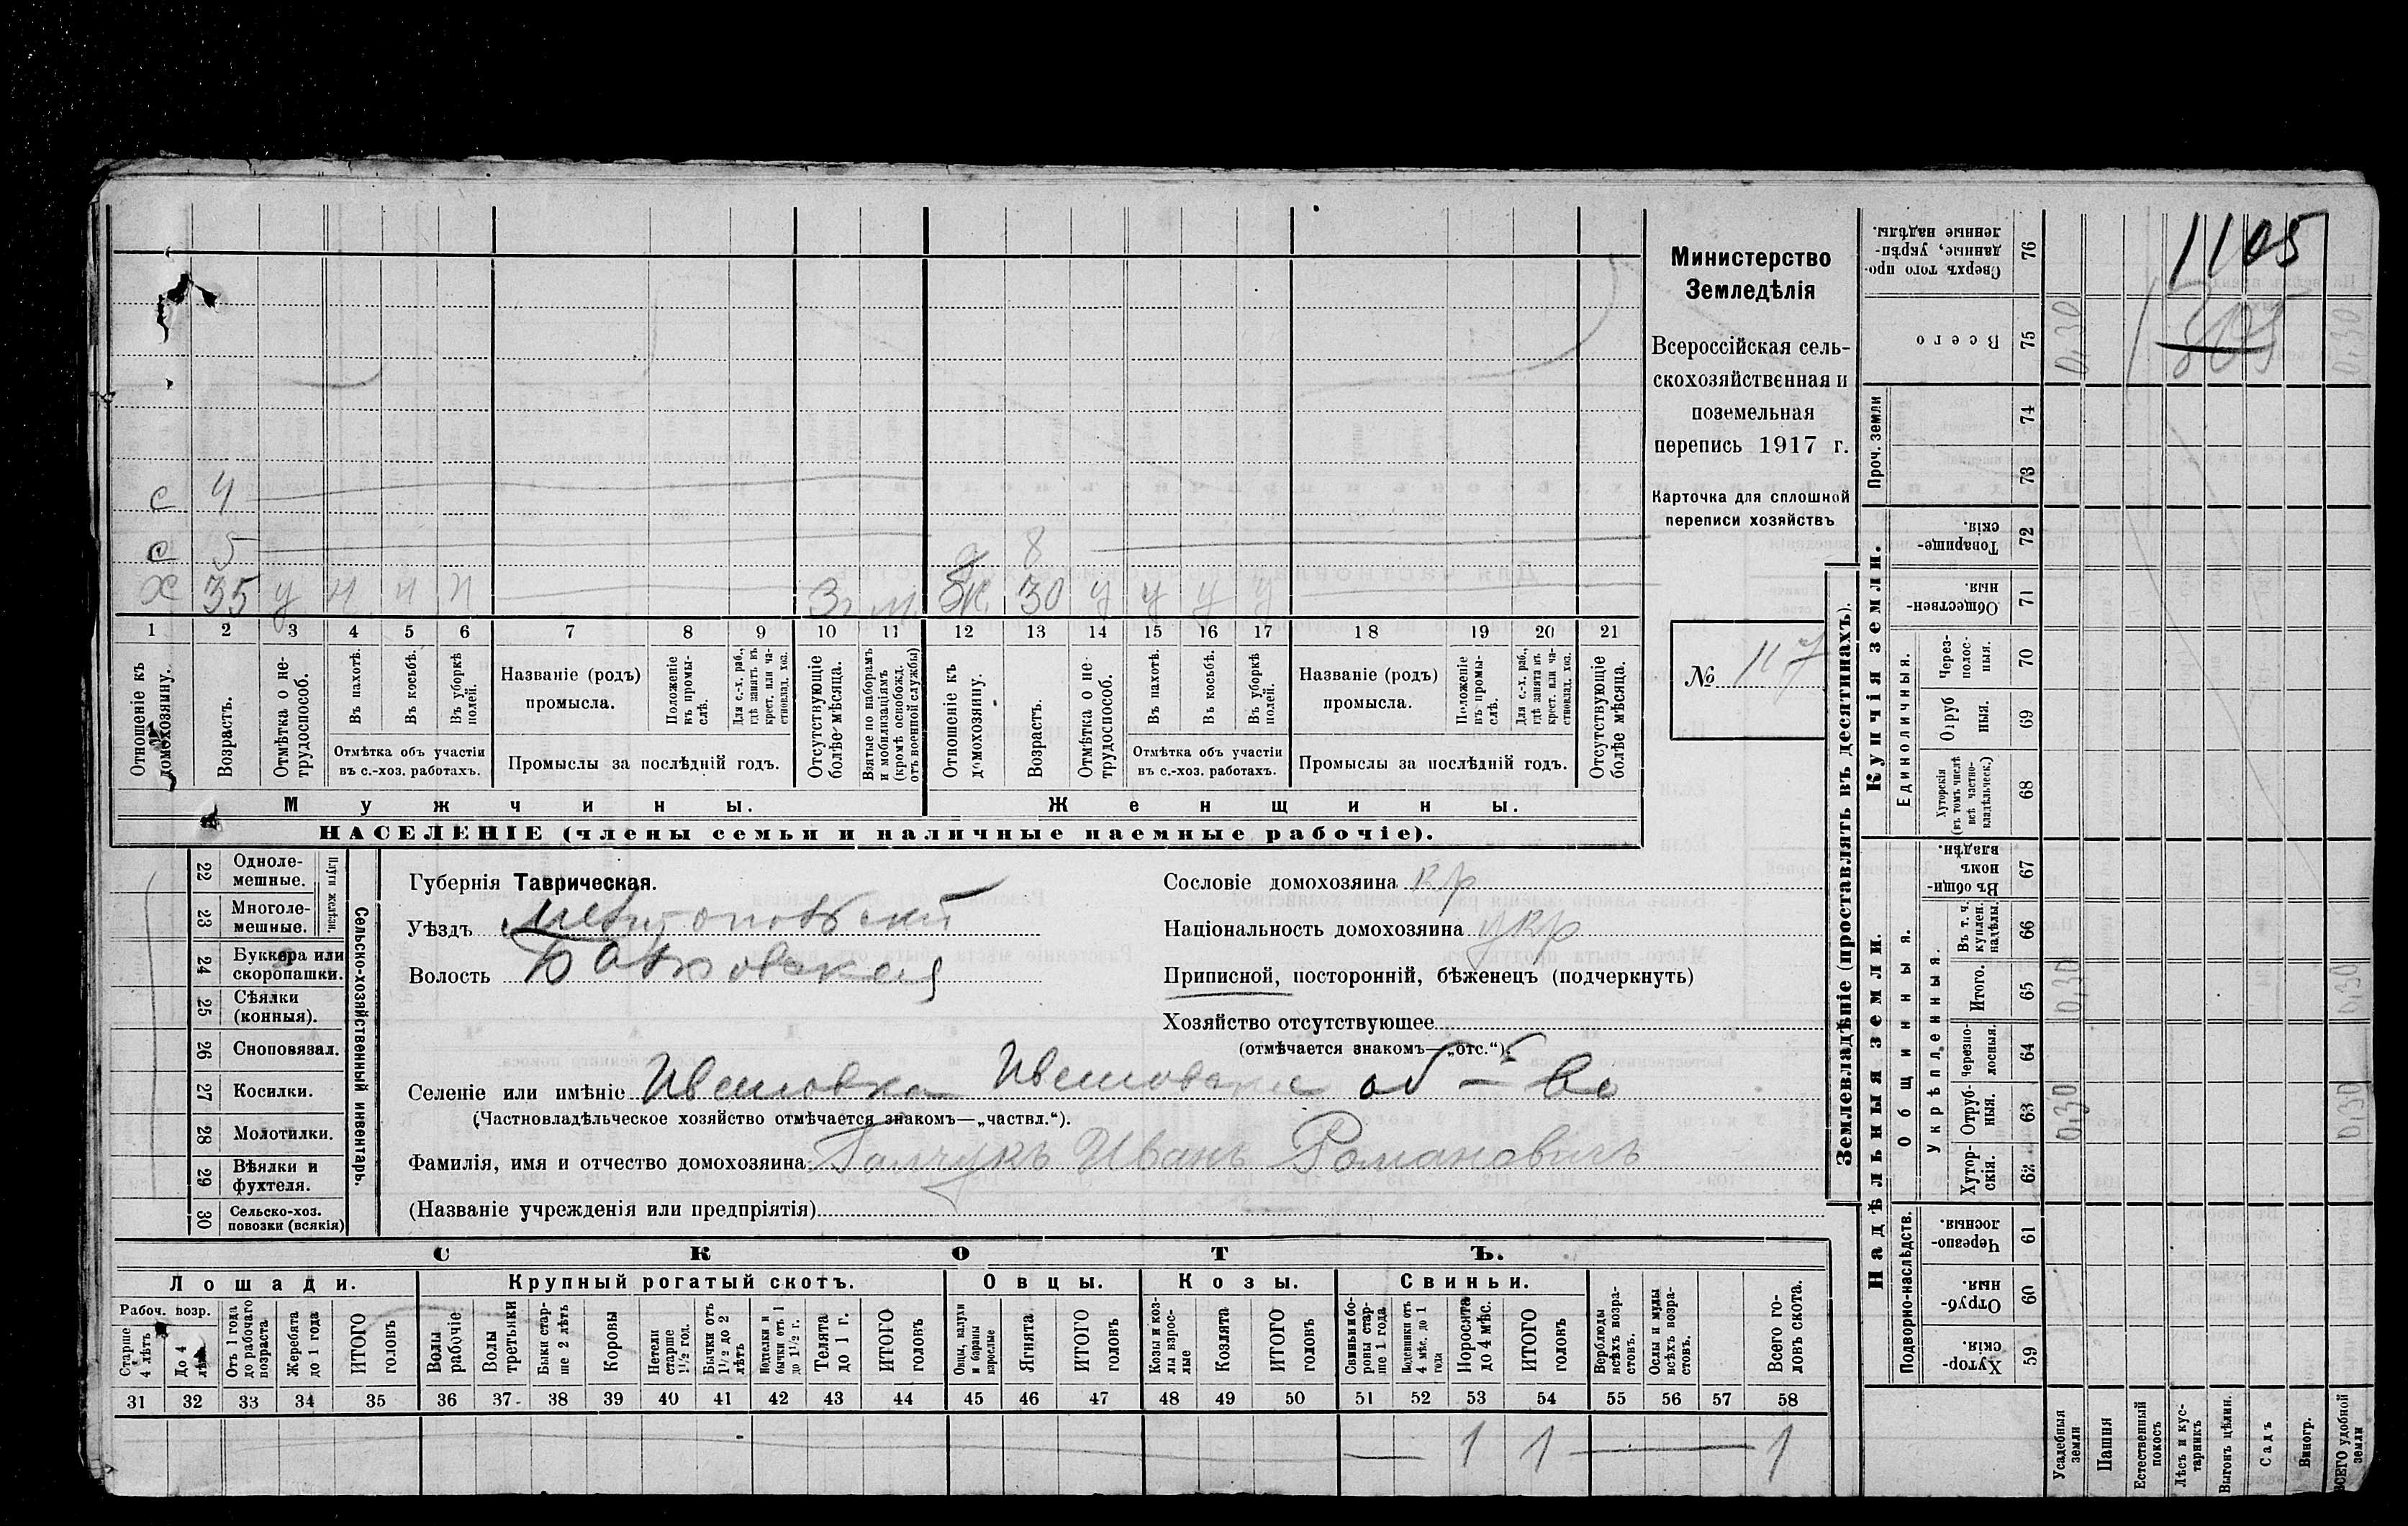 1105
Министерство
Земледѣлія
Всероссійская сель-
скохозяйственная и
поземельная
перепись 1917 г.
Карточка для сплошной
переписи хозяйствъ
№ 117
с 4
с 5
х 35 у ч ч ч
д 8
ж 30 у у у у
1 2 3 4 5 6 7 8 9 10 11 12 13 14 15 16 17 18 19 20 21
Отношеніе къ домохозяину.
Возрастъ.
Отмѣтка о не-трудоспособ.
Въ пахотѣ.
Въ косьбѣ.
Въ уборкѣ полей.
Отмѣтка объ участіи
въ с.-хоз. работахъ.
Названіе (родъ)
промысла.
Положеніе въ промы-слѣ.
Для с.-х. раб., гдѣ занятъ въ крест. или ча-стновлад. хоз.
Промыслы за послѣдній годъ.
Отсутствующіе болѣе мѣсяца.
Взятые по наборамъ и мобилизаціямъ (кромѣ освобожд. отъ военной службы)
Отношеніе къ домохозяину.
Возрастъ.
Отмѣтка о не-трудоспособ.
Въ пахотѣ.
Въ косьбѣ.
Въ уборкѣ полей.
Отмѣтка объ участіи
въ с.-хоз. работахъ.
Названіе (родъ)
промысла.
Положеніе въ промы-слѣ.
Для с.-х. раб., гдѣ занята въ крест. или ча-стновлад. хоз.
Промыслы за послѣдній годъ.
Отсутствующіе болѣе мѣсяца.
Мужчины.
Женщины.
НАСЕЛЕНІЕ (члены семьи и наличные наемные рабочіе).
22 Одноле-
мешные.
23 Многоле-
мешные.
Плуги желѣзн.
24 Буккера или
скоропашки.
25 Сѣялки
(конныя).
26 Сноповязал.
27 Косилки.
28 Молотилки.
29 Вѣялки и
фухтеля.
30 Сельско-хоз.
повозки (всякія)
Сельско-хозяйственный инвентарь.
Губернія Таврическая.
Уѣздъ Мелитопольскій
Волость
Сословіе домохозяина кр
Національность домохозяина укр
Приписной, посторонній, бѣженецъ (подчеркнуть)
Хозяйство отсутствующее
(отмѣчается знакомъ—„отс.“)
Селеніе или имѣніе об-во
(Частновладѣльческое хозяйство отмѣчается знакомъ—„частвл.“).
Фамилія, имя и отчество домохозяина: Иванъ Романовичъ
(Названіе учрежденія или предпріятія)
СКОТЪ.
Лошади.
Крупный рогатый скотъ.
Овцы.
Козы.
Свиньи.
Рабоч. возр.
Старше 4 лѣтъ
До 4 лѣтъ
Отъ 1 года до рабочаго возраста
Жеребята до 1 года
ИТОГО головъ
Волы рабочіе
Волы третьяки
Быки стар-ше 2 лѣтъ
Коровы
Нетели старше 1½ год.
Бычки отъ 1½ до 2 лѣтъ
Подтелки и бычки отъ 1 до 1½ г.
Телята до 1 г.
ИТОГО головъ
Овцы, валухи и бараны взрослые
Ягнята
ИТОГО головъ
Козы и коз-лы взрос-лые
Козлята
ИТОГО головъ
Свиньи и бо-ровы стар-ше 1 года
Подсвинки отъ 4 мѣс. до 1 года
Поросята до 4 мѣс.
ИТОГО головъ
Верблюды всѣхъ возра-стовъ.
Ослы и мулы всѣхъ возра-стовъ.
Всего го-ловъ скота.
31 32 33 34 35 36 37 38 39 40 41 42 43 44 45 46 47 48 49 50 51 52 53 54 55 56 57 58
1 1 1
Землевладѣніе (проставлять въ десятинахъ).
Купчія земли.
Надѣльныя земли.
76 Сверхъ того про-данные, укрѣп-ленные надѣлы.
75 Всего 0,30 0,30
Проч. земли
74
73
72 Товарище-скія.
71 Обществен-ныя.
Единоличныя.
70 Через-полос-ныя.
69 Отруб-ныя.
68 Хуторскія (въ томъ числѣ всѣ частно-владѣльческ.)
Общинныя.
67 Въ общин-номъ владѣн.
Укрѣпленныя.
66 Въ т. ч. куплен. надѣлы.
65 Итого. 0,30 0,30
64 Черезпо-лосныя.
63 Отруб-ныя. 0,30 0,30
62 Хутор-скія.
Подворно-наслѣдств.
61 Черезпо-лосныя.
60 Отруб-ныя.
59 Хутор-скія.
Усадебныя земли
Пашня
Естественный покосъ
Лѣсъ и кус-тарникъ
Выгонъ цѣлин.
Садъ
Виногр.
ВСЕГО удобной земли